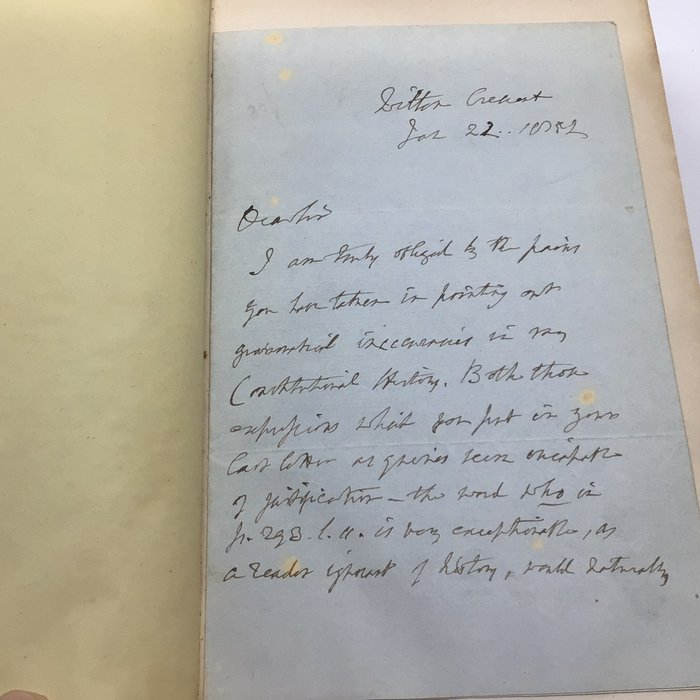 Wilton Crescent
Jan 22. 1852
Dear Sir
I am truly obliged by the pains
you have taken in pointing out
grammatical inaccuracies in my
Constitutional History. Both those
expressions which you put in your
last letter as queries seem incapable
of justification – the word who in
p. 293. l. 11. is very exceptionable, as
a reader ignorant of history, would naturally